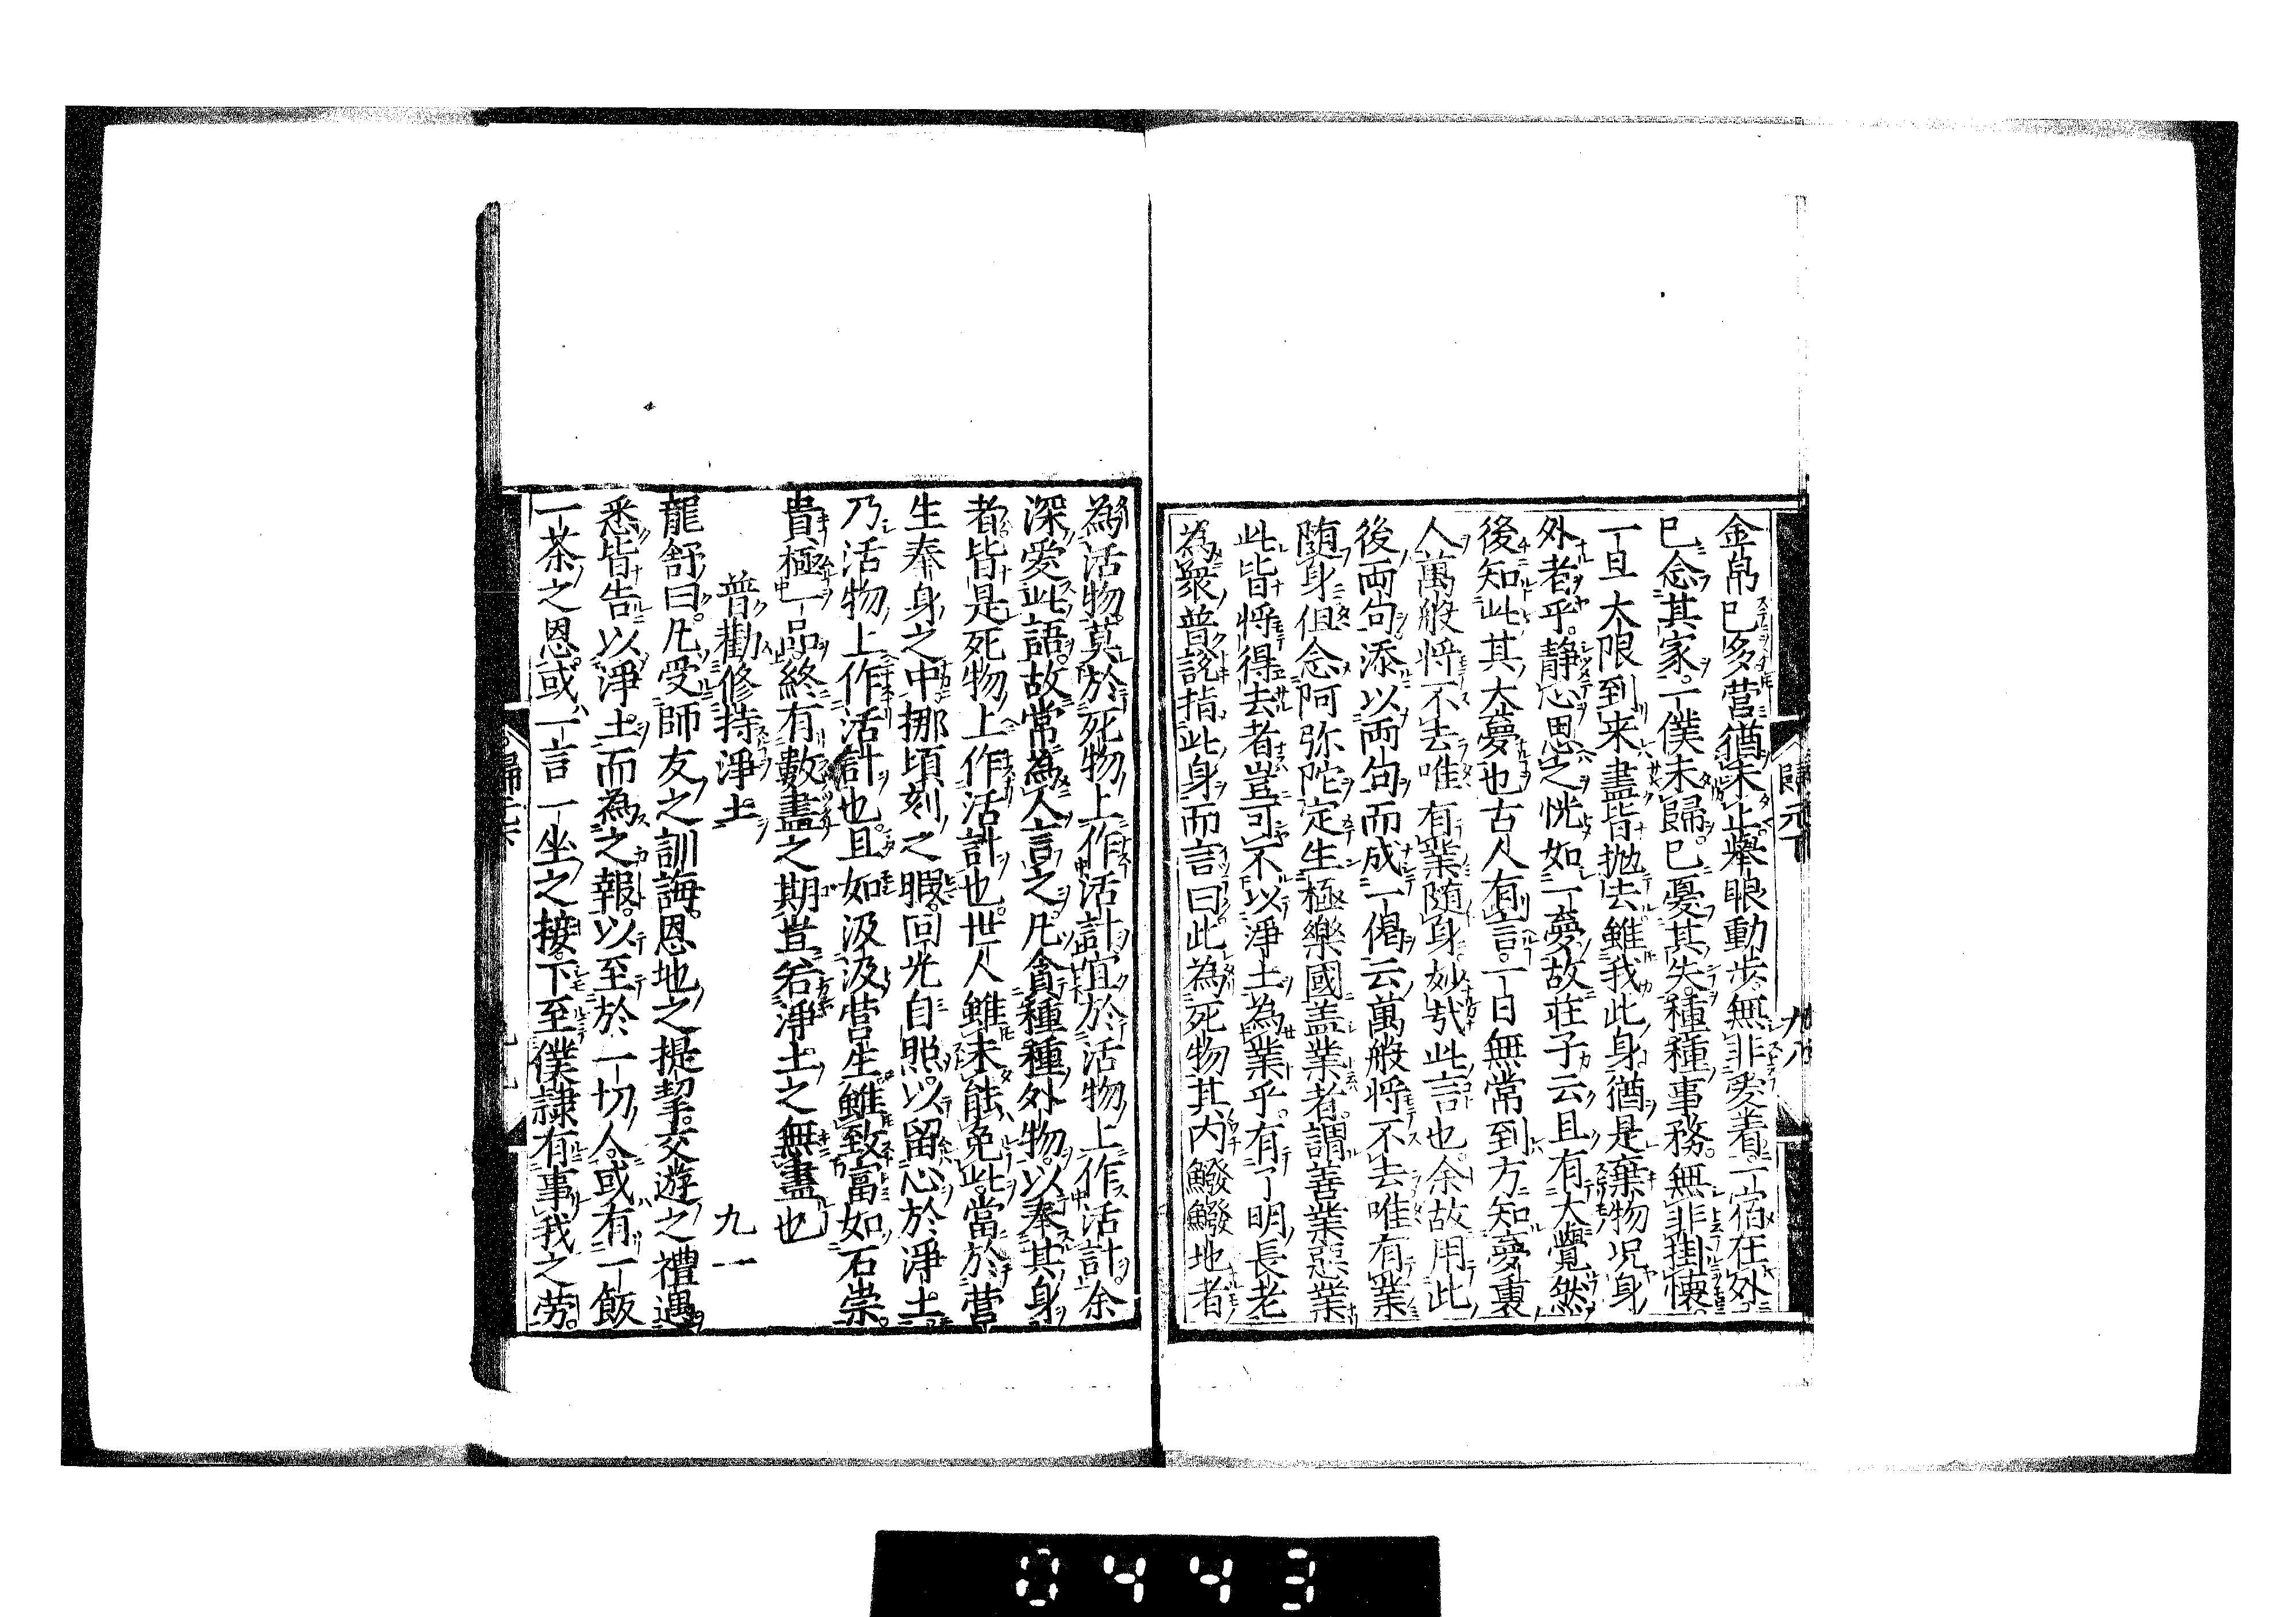 金帛已多營猶未止舉眼動步無非愛着一宿在外
已念其家一僕未歸已憂其失種種事務無非掛懷
一旦大限到来盡皆抛去雖我此身猶是棄物况身
外者乎静心思之恍如一夢故莊子云且有大覺然
後知此其大夢也古人有言一日無常到方知夢裏
人萬般将不去唯有業随身妙哉此言也余故用此
後両句添以両句而成一偈云萬般将不去唯有業
随身但念阿弥陀定生極樂國盖業者謂善業惡業
此皆将得去者豈可不以淨土為業乎有了明長老
為衆普說指此身而言曰此為死物其内鱍鱍地者
歸元下
九八
為活物莫於死物上作活計宜於活物上作活計余
深愛此語故常為人言之凡貪種種外物以奉其身
者皆是死物上作活計也世人雖未能免此當於營
生奉身之中挪頃刻之暇回光自照以留心於淨土
乃活物上作活計也且如汲汲营生雖致富如石崇
貴極一品終有數盡之期豈若淨土之無盡也
普勸修持淨土　九一
龍舒曰凡受師友之訓誨恩地之提挈交遊之禮遇
悉皆告以淨土而為之報以至於一切人或有一飯
一茶之恩或一言一坐之接下至僕隷有事我之劳
歸元下
0443